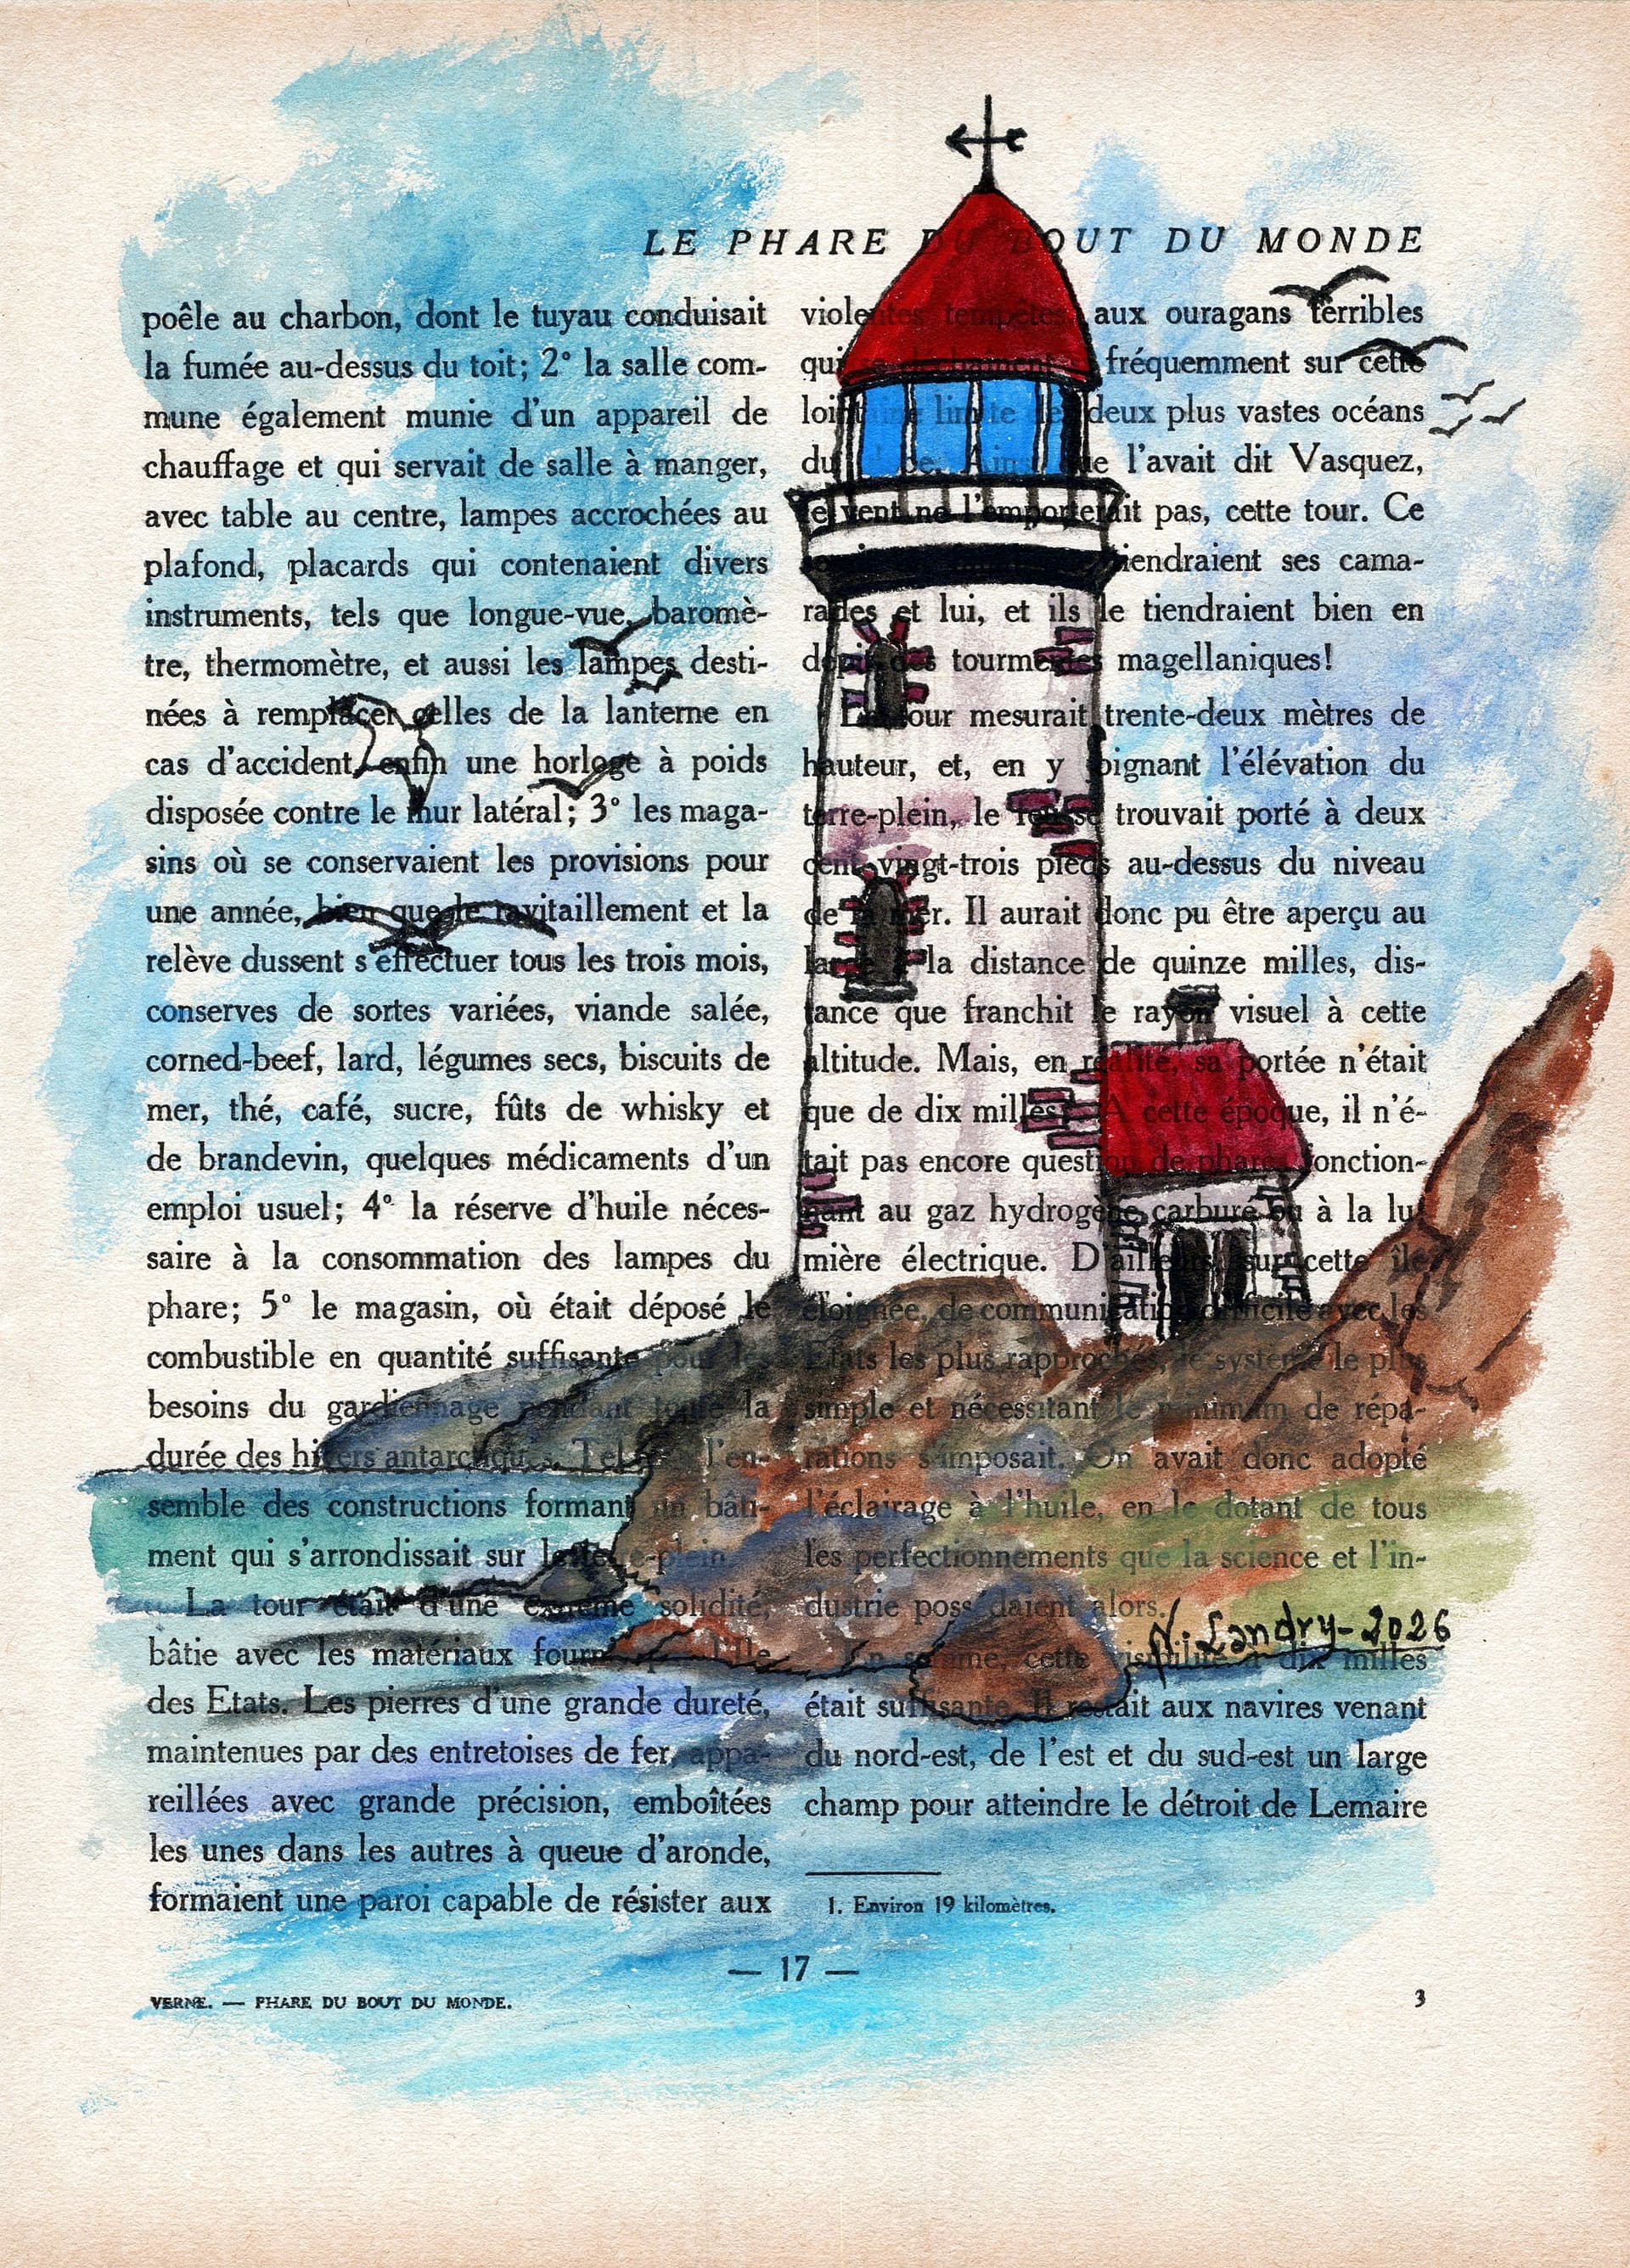 LE PHARE DU BOUT DU MONDE
poêle au charbon, dont le tuyau conduisait
la fumée au-dessus du toit; 2° la salle com-
mune également munie d'un appareil de
chauffage et qui servait de salle à manger,
avec table au centre, lampes accrochées au
plafond, placards qui contenaient divers
instruments, tels que longue-vue, baromè-
tre, thermomètre, et aussi les lampes desti-
nées à remplacer celles de la lanterne en
cas d'accident, enfin une horloge à poids
disposée contre le mur latéral; 3° les maga-
sins où se conservaient les provisions pour
une année, bien que le ravitaillement et la
relève dussent s'effectuer tous les trois mois,
conserves de sortes variées, viande salée,
corned-beef, lard, légumes secs, biscuits de
mer, thé, café, sucre, fûts de whisky et
de brandevin, quelques médicaments d'un
emploi usuel; 4° la réserve d'huile néces-
saire à la consommation des lampes du
phare; 5° le magasin, où était déposé le
combustible en quantité suffisante pour les
besoins du gardiennage pendant toute la
durée des hivers antarctiques. Tel l'en-
semble des constructions formant un bâti-
ment qui s'arrondissait sur le terre-plein.
La tour était d'une extrême solidité,
bâtie avec les matériaux fournis par l'île
des Etats. Les pierres d'une grande dureté,
maintenues par des entretoises de fer, appa-
reillées avec grande précision, emboîtées
les unes dans les autres à queue d'aronde,
formaient une paroi capable de résister aux
violentes tempêtes, aux ouragans terribles
qui se déchaînent fréquemment sur cette
lointaine limite des deux plus vastes océans
du globe. Ainsi que l'avait dit Vasquez,
le vent ne l'emporterait pas, cette tour. Ce
tiendraient ses cama-
rades et lui, et ils le tiendraient bien en
dépit des tourmentes magellaniques!
La tour mesurait trente-deux mètres de
hauteur, et, en y joignant l'élévation du
terre-plein, le se trouvait porté à deux
cent vingt-trois pieds au-dessus du niveau
de la mer. Il aurait donc pu être aperçu au
large à la distance de quinze milles, dis-
tance que franchit le rayon visuel à cette
altitude. Mais, en réalité, sa portée n'était
que de dix milles. A cette époque, il n'é-
tait pas encore question de phares fonction-
nant au gaz hydrogène carburé ou à la lu-
mière électrique. D'ailleurs, sur cette île
éloignée, de communication difficile avec les
Etats les plus rapprochés, le système le plus
simple et nécessitant le minimum de répa-
rations s'imposait. On avait donc adopté
l'éclairage à l'huile, en le dotant de tous
les perfectionnements que la science et l'in-
dustrie possédaient alors.
N. Landry-2026
En somme, cette visibilité à dix milles
était suffisante. Il restait aux navires venant
du nord-est, de l'est et du sud-est un large
champ pour atteindre le détroit de Lemaire
1. Environ 19 kilomètres.
— 17 —
VERNE. — PHARE DU BOUT DU MONDE. 3